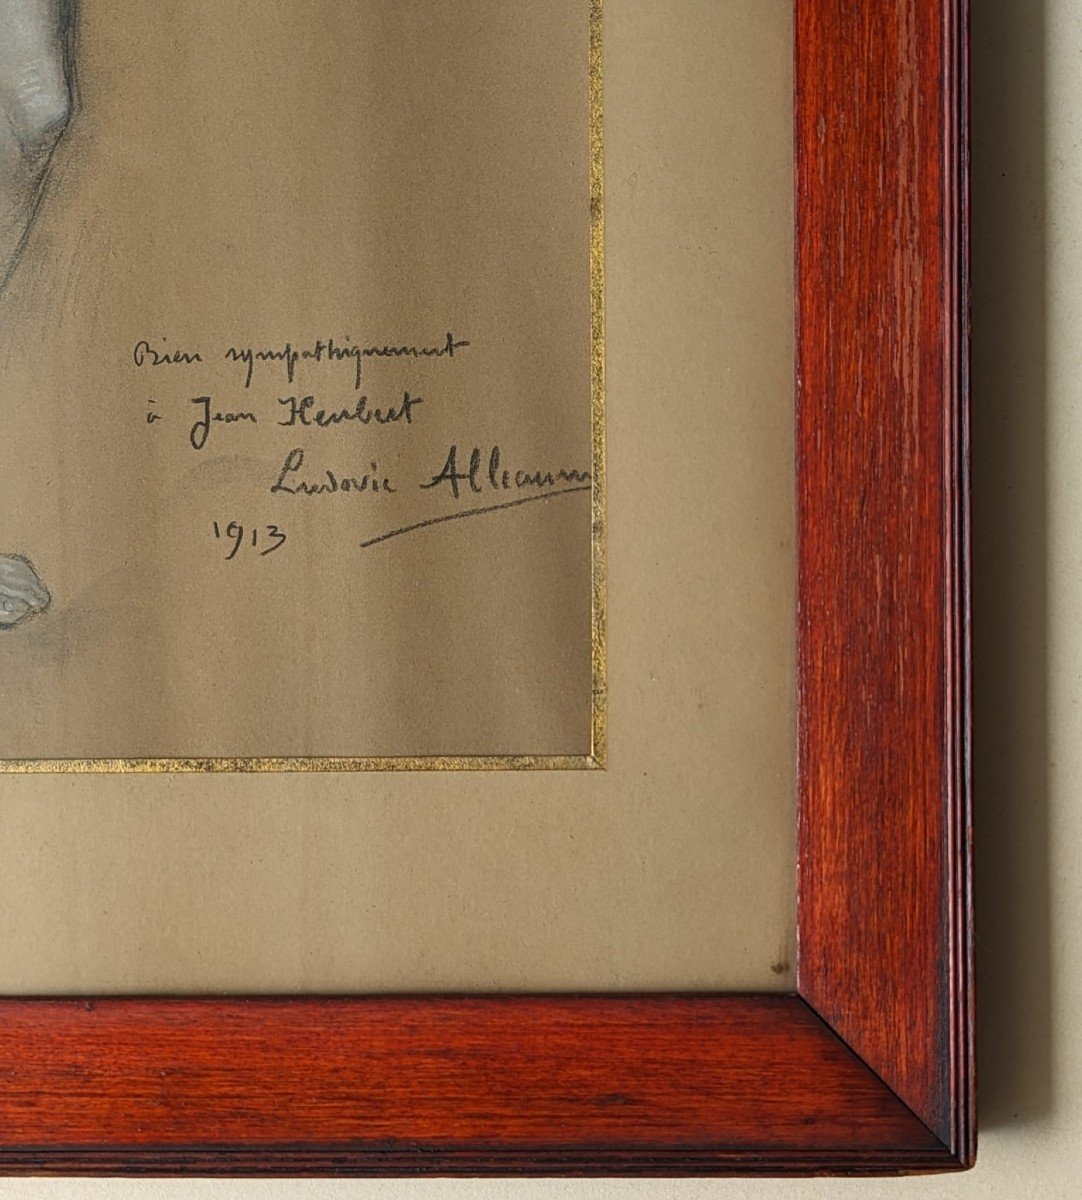 Bien sympathiquement
à Jean Heubert
Ludovic Alleaum
1913